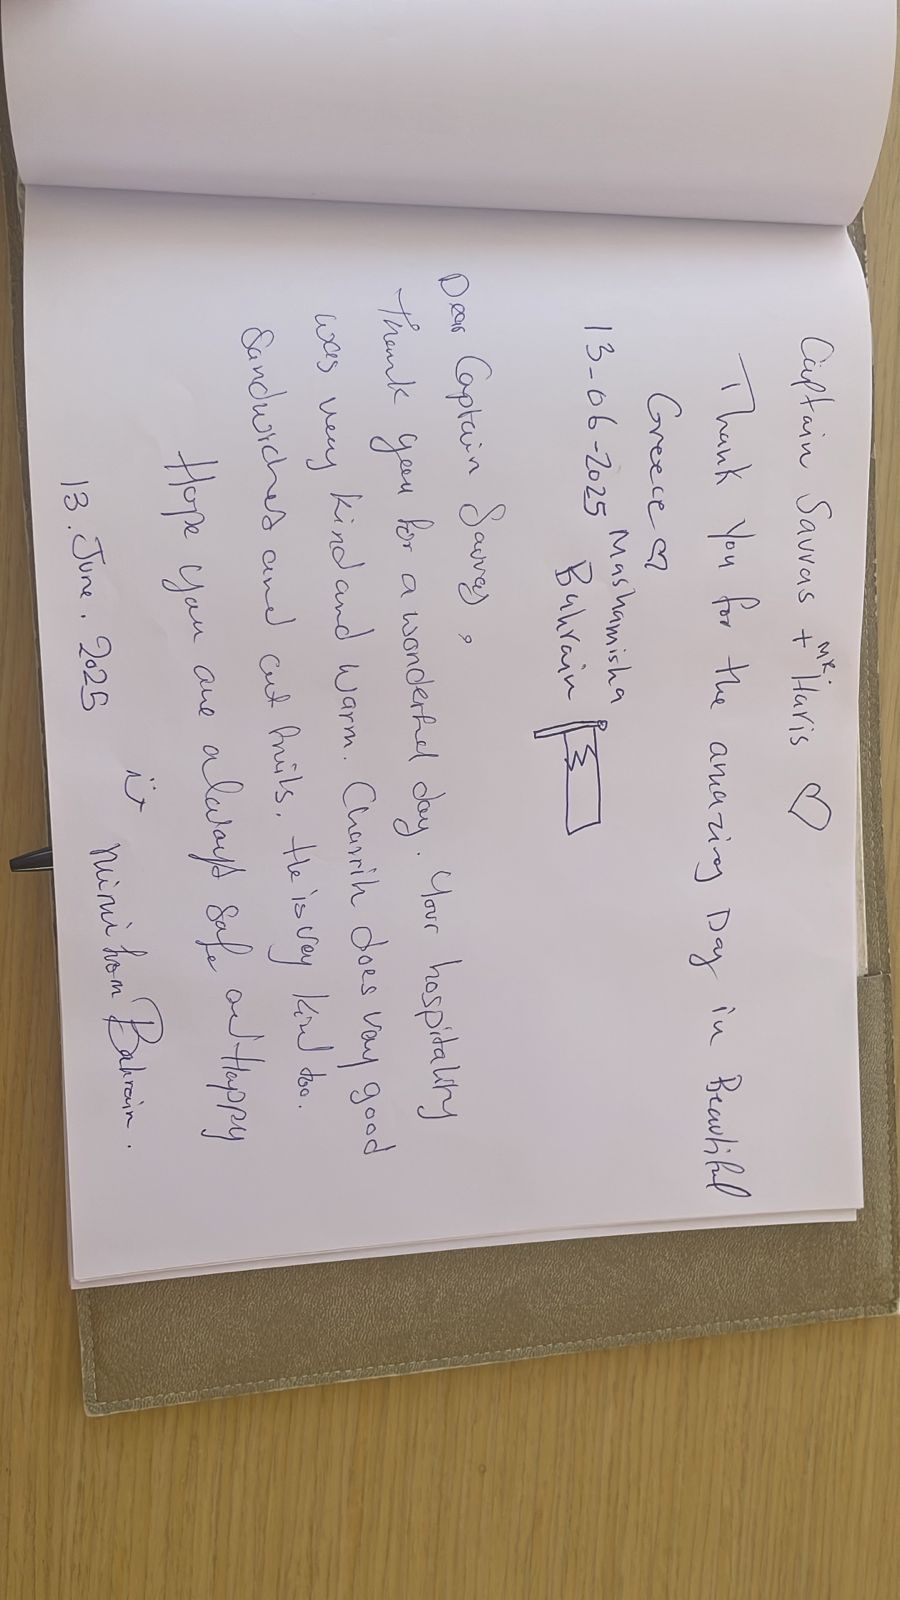 Captain Savvas + MR. Haris ♡
Thank You for the amazing Day in Beautiful
Greece ♡
Mashamisha
13-06-2025 Bahrain
Dear Captain Savvas,
Thank you for a wonderful day. Your hospitality
was very kind and warm. does very good
Sandwiches and cut fruits. He is very kind too.
Hope you are always safe and Happy
:) mimi from Bahrain.
13. June. 2025